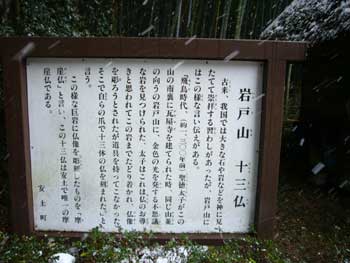 岩戸山 十三仏
古来、我国では大きな石や岩などを神に見
たてて崇拝する習わしがあったが、岩戸山に
はこの様な言い伝えがある。
「飛鳥時代、(約一三〇〇年前)聖徳太子がこの
山の南裏に瓦屋寺を建てられた時、同じ山並
の向うの岩戸山に、金色の光を発する不思議
な岩を見つけられた。太子はこれは仏のお導
きと思われてこの岩までたどり着かれ、仏像
を彫ろうとされたが道具を持ってこなかった。
そこで自らの爪で十三体の仏を刻まれた」と
言う。
この様な巨岩に仏像を彫刻したものを「摩
崖仏」と言い、この十三仏は安土で唯一の摩
崖仏である。
安土町